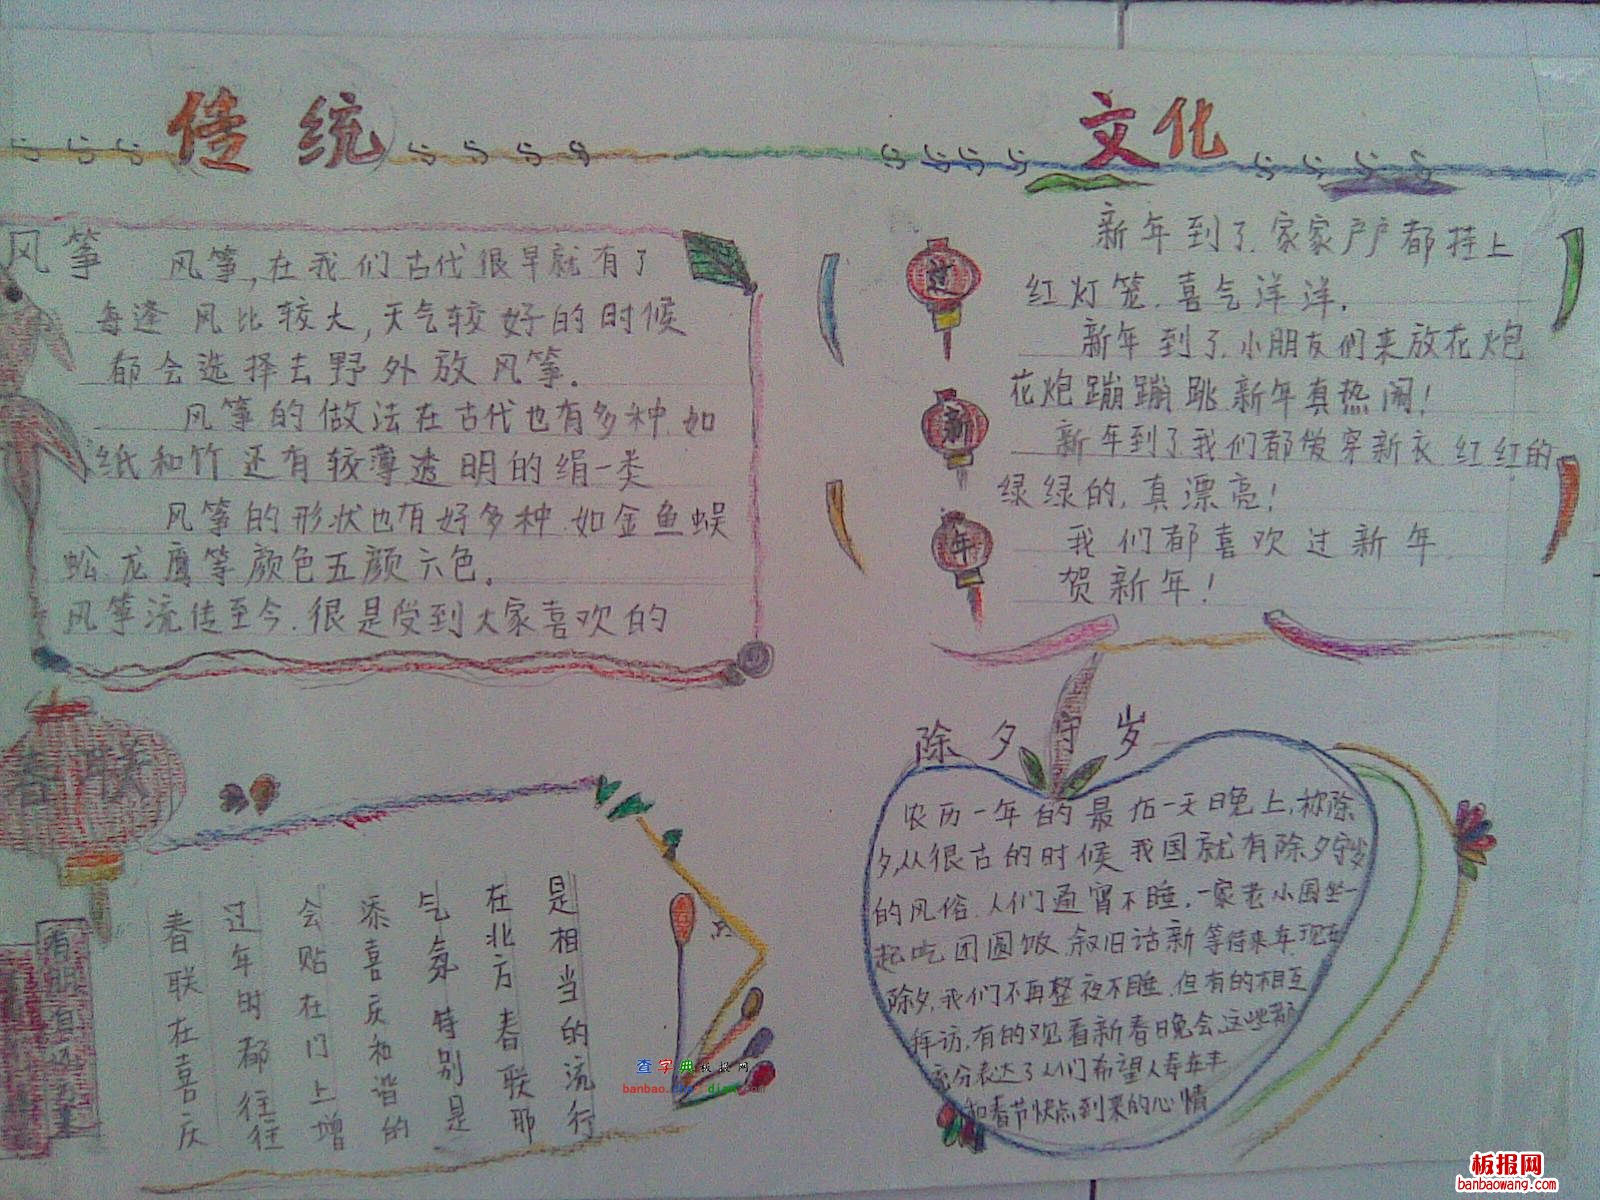 传统
文化
风筝
风筝,在我们古代很早就有了
每逢风比较大,天气较好的时候
都会选择去野外放风筝.
风筝的做法在古代也有多种.如
纸和竹还有较薄透明的绢一类
风筝的形状也有好多种.如金鱼蜈
蚣龙鹰等颜色五颜六色.
风筝流传至今.很是受到大家喜欢的
过
新
年
新年到了.家家户户都挂上
红灯笼.喜气洋洋.
新年到了.小朋友们来放花炮
花炮蹦蹦跳.新年真热闹!
新年到了我们都爱穿新衣红红的
绿绿的.真漂亮!
我们都喜欢过新年
贺新年!
春联
春联在喜庆
过年时都往往
会贴在门上增
添喜庆和谐的
气氛特别是
在北方春联那
是相当的流行
有朋
除夕守岁
农历一年的最后一天日晚上,称除
夕,从很古的时候我国就有除夕守岁
的风俗.人们通宵不睡.一家老小围坐一
起吃团圆饭.叙旧话新等待来年.现在
除夕,我们不再整夜不睡.但有的相互
拜访,有的观看新春日晚会.这些都
充分表达了人们希望人寿年丰
和春节快点到来的心情
查字典板报网
banbao.
板报网
banbaowang.com